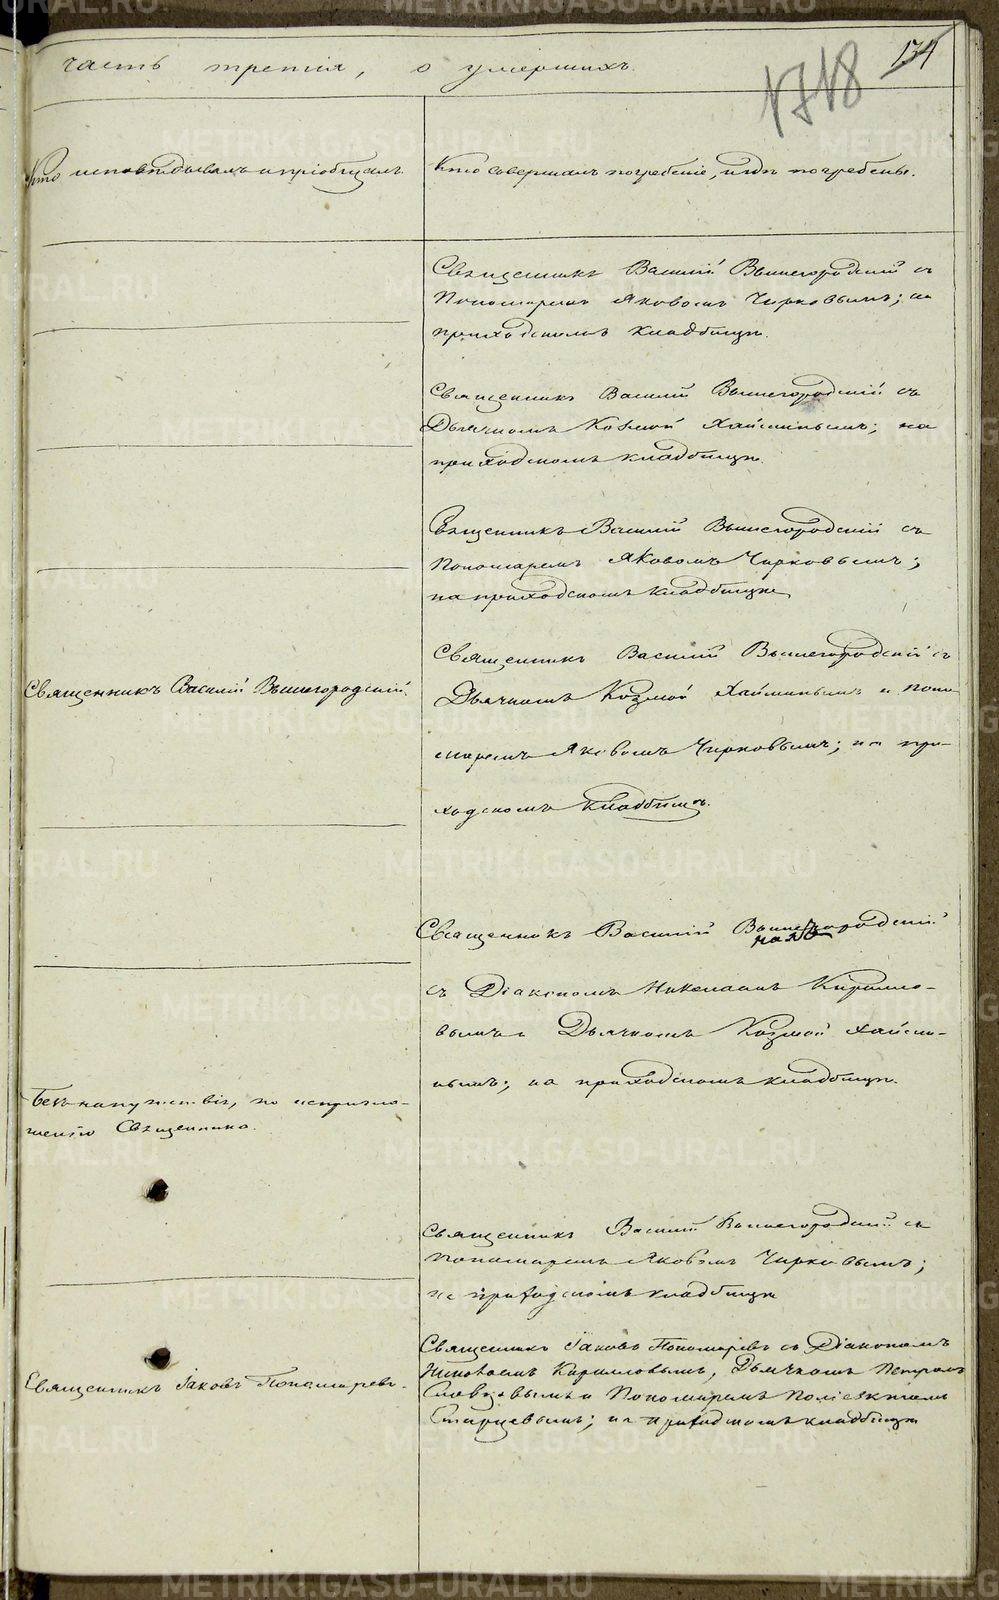 часть третія, о умершихъ.
134
1718
Кто исповѣдывалъ и пріобщалъ.
Кто совершалъ погребеніе, и гдѣ погребены.
Священникъ Василій Вышегородскій съ
Пономаремъ Яковомъ Чирковымъ; на
приходскомъ кладбищѣ.
Священникъ Василій Вышегородскій съ
Дьячкомъ Козмой Хайминымъ; на
приходскомъ кладбищѣ.
Священникъ Василій Вышегородскій съ
Пономаремъ Яковомъ Чирковымъ;
на приходскомъ кладбищѣ
Священникъ Василій Вышегородскій.
Священникъ Василій Вышегородскій съ
Дьячкомъ Козмой Хайминымъ и поно-
маремъ Яковомъ Чирковымъ; на при-
ходскомъ кладбищѣ.
Священникъ Василій Вышегородскій
съ Діакономъ Николаемъ Кирилло-
вымъ и Дьячкомъ Козмой Хайми-
нымъ; на приходскомъ кладбищѣ.
Безъ напутствія, по
Священника.
Священникъ Василій Вышегородскій съ
пономаремъ Яковомъ Чирковымъ;
на приходскомъ кладбищѣ
Священникъ Іаковъ Пономаревъ.
Священникъ Іаковъ Пономаревъ съ Діакономъ
Кирилловымъ, Дьячкомъ Петромъ
Словцовымъ и Пономаремъ
Старцевымъ; на приходскомъ кладбищѣ
METRIKI.GASO-URAL.RU